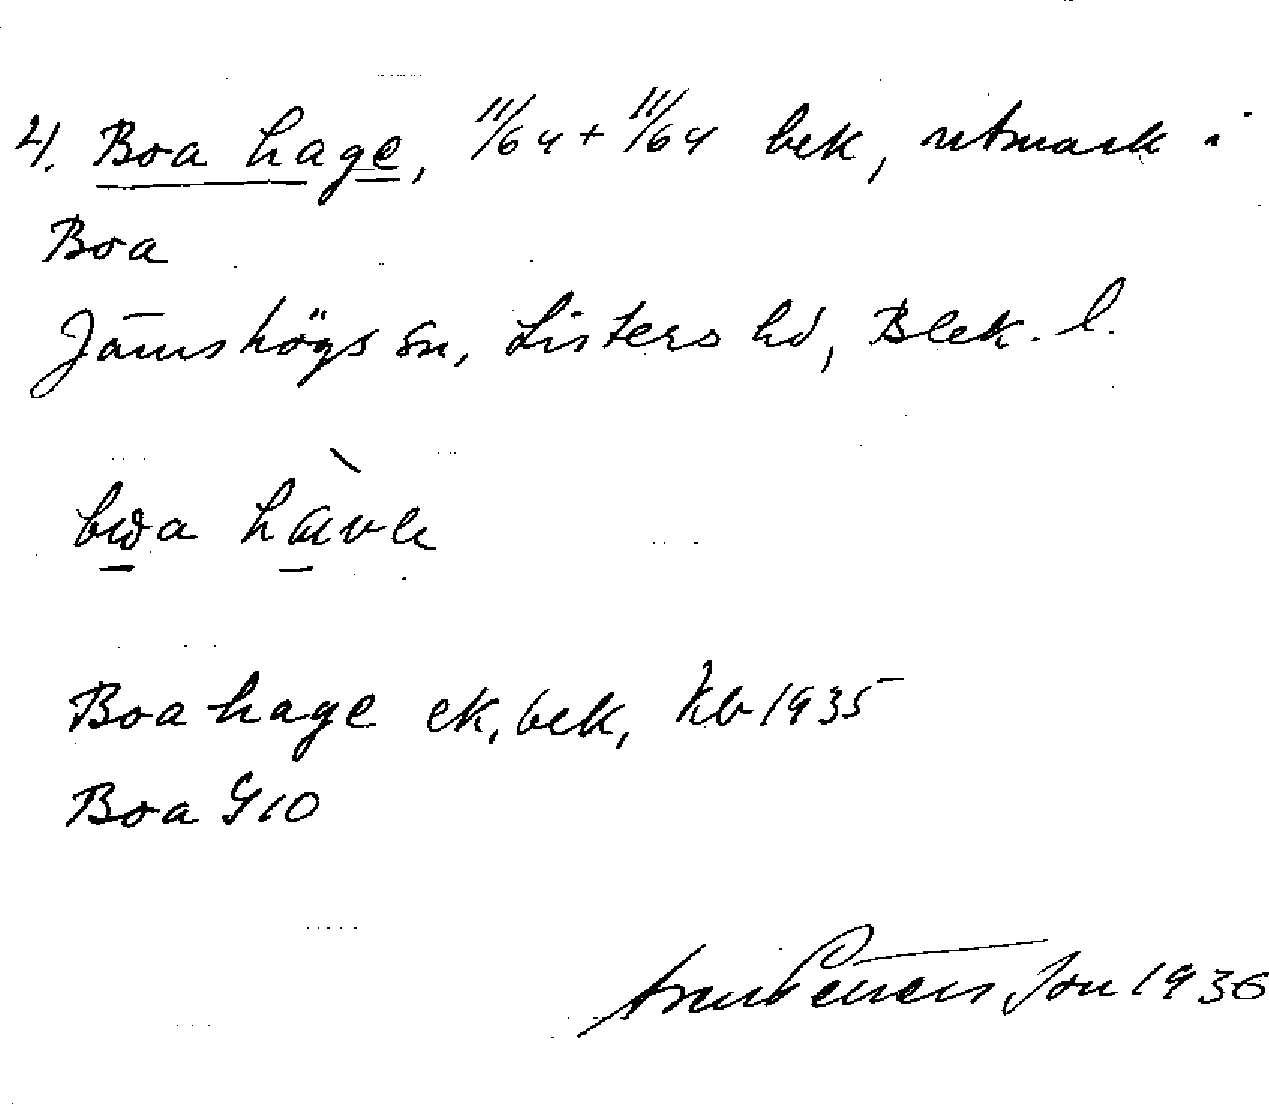 4. Boa hage, 11/64 + 11/64 bek, utmark i
Boa
Jämshögs sn, Listers hd, Blek. l.
Boa hage ek, bek, kb 1935
Boa G10
1936